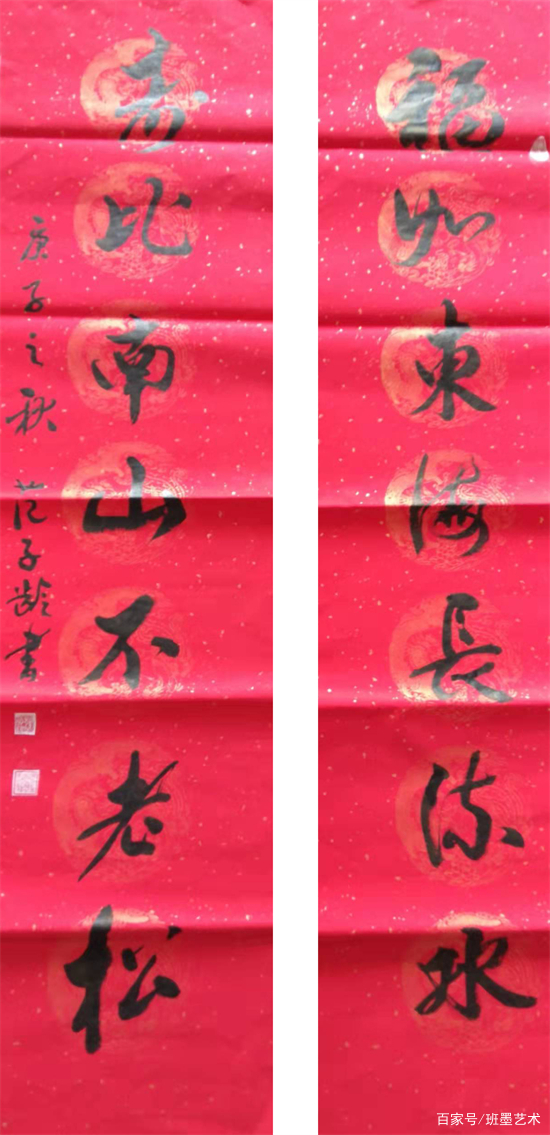 福如東海長流水
寿比南山不老松
庚子之秋 范子龄書
百家号/班墨艺术